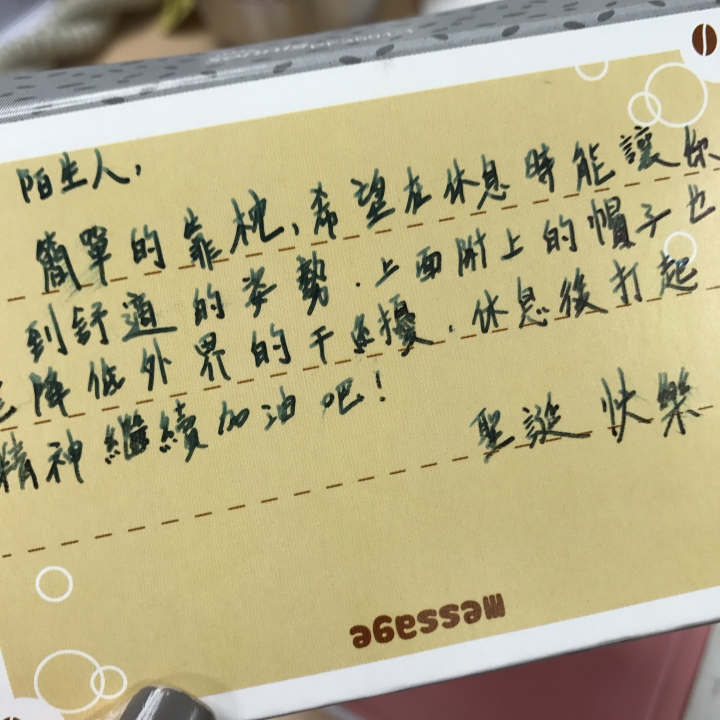 陌生人，
簡單的靠枕，希望在休息時能讓你
到舒適的姿勢．上面附上的帽子也
降低外界的干擾．休息後打起
精神繼續加油吧！
聖誕快樂
message